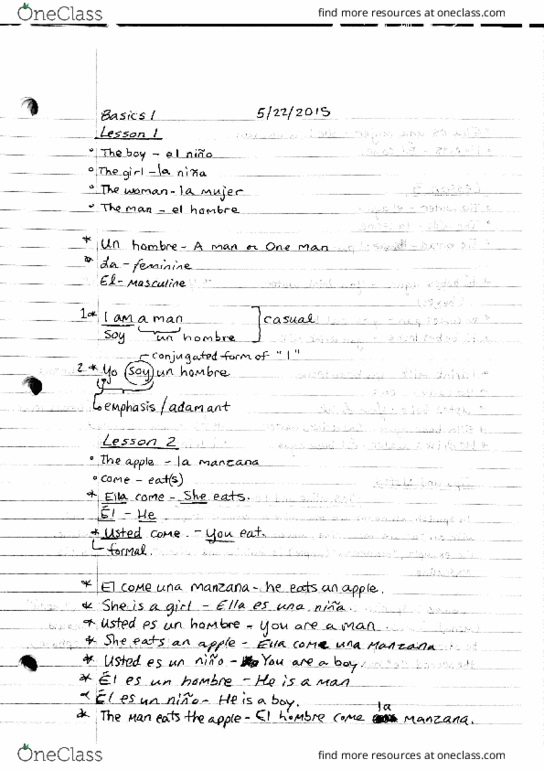 OneClass find more resources at oneclass.com
Basics 1 5/22/2015
Lesson 1
• The boy – el niño
• The girl – la niña
• The woman – la mujer
• The man – el hombre
* Un hombre – A man or One man
* La – feminine
El – Masculine
1.* I am a man
Soy un hombre ] casual
conjugated form of "I"
2.* Yo soy un hombre
emphasis/adamant
Lesson 2
• The apple – la manzana
• come – eat(s)
* Ella come – She eats.
Él – He
* Usted come. – You eat.
formal
* El come una manzana – he eats an apple.
* She is a girl – Ella es una niña.
* Usted es un hombre – You are a man.
* She eats an apple – Ella come una manzana
* Usted es un niño – You are a boy.
* Él es un hombre – He is a man
* Él es un niño – He is a boy.
* The man eats the apple – El hombre come la manzana.
OneClass find more resources at oneclass.com